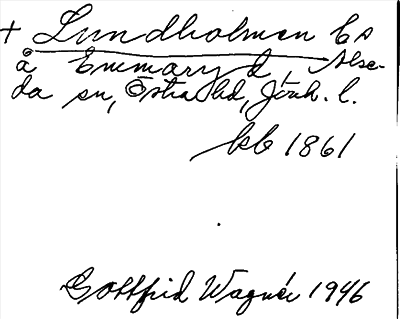 + Lundholmen Cs
å Emmaryd, Alse-
da sn, Östra hd, Jönk. l.
kb 1861
Gottfrid Wagnér 1946